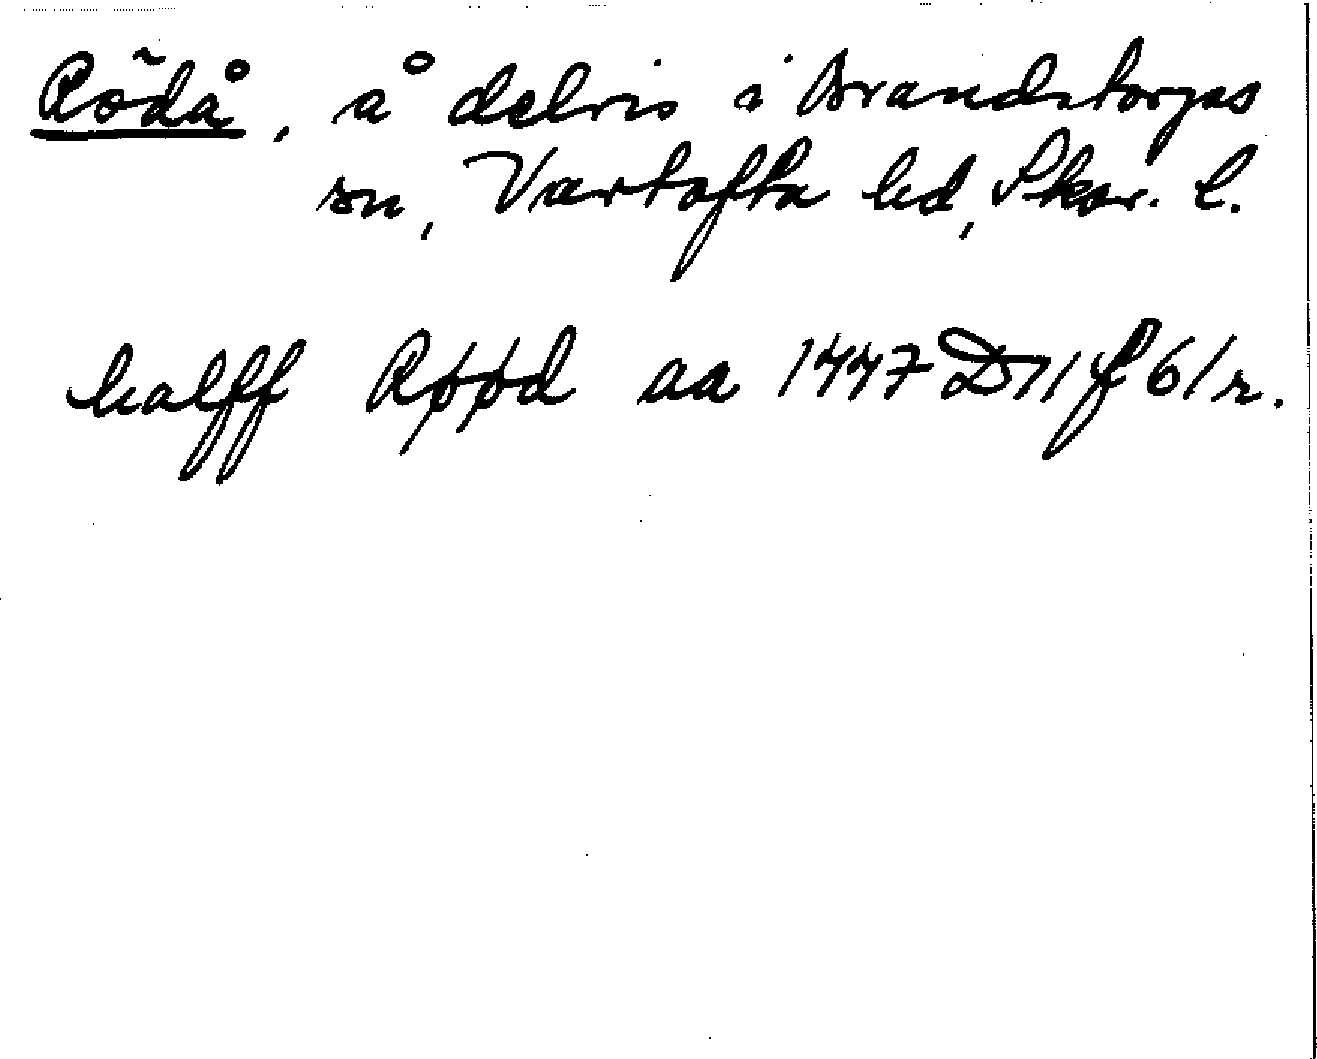 Rödå, å delvis i Brandstorps
sn, Vartofta hd, Skar. l.
halff Røød aa 1447 D11 f 61 r.